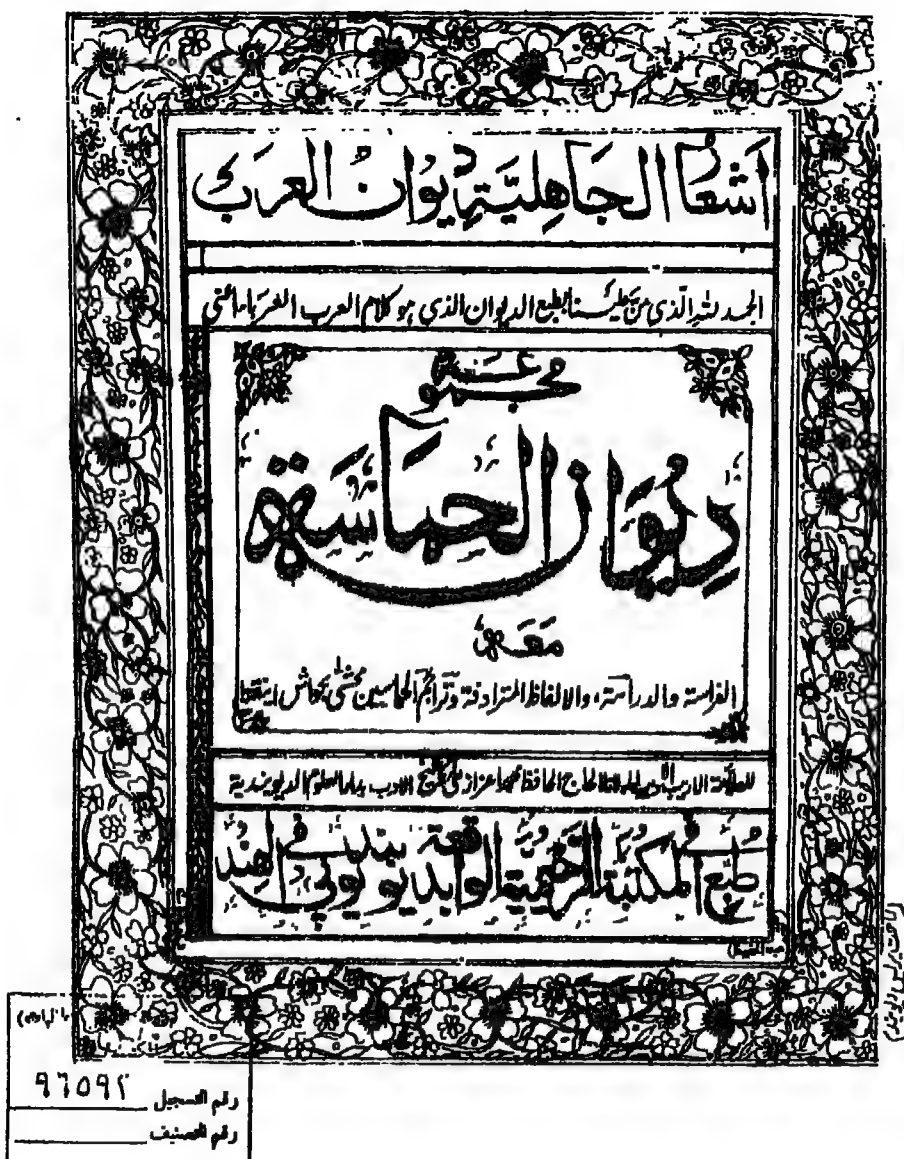 اَشعَارُ الجَاهِليَّةِ دِيُوَانُ العَرَب
الحمد لله الذي من علينا بطبع الديوان الذي هو كلام العرب العرباء اعني
مجموعة
دِيوَان الحِمَاسَة
مَعَهٗ
الفراسة والدراسة، والالفاظ المترادفة وتراجم الحماسيين محشى بحواش
للعلامة الاديب الحاج الحافظ محمد اعزاز علي شيخ الادب بدار العلوم الديوبندية
طُبِعَ في المكتبة الرَّحيمية الواقعة بديوبند يوپي في الهند
رقم التسجيل ٩٦٥٩٢
رقم التصنيف